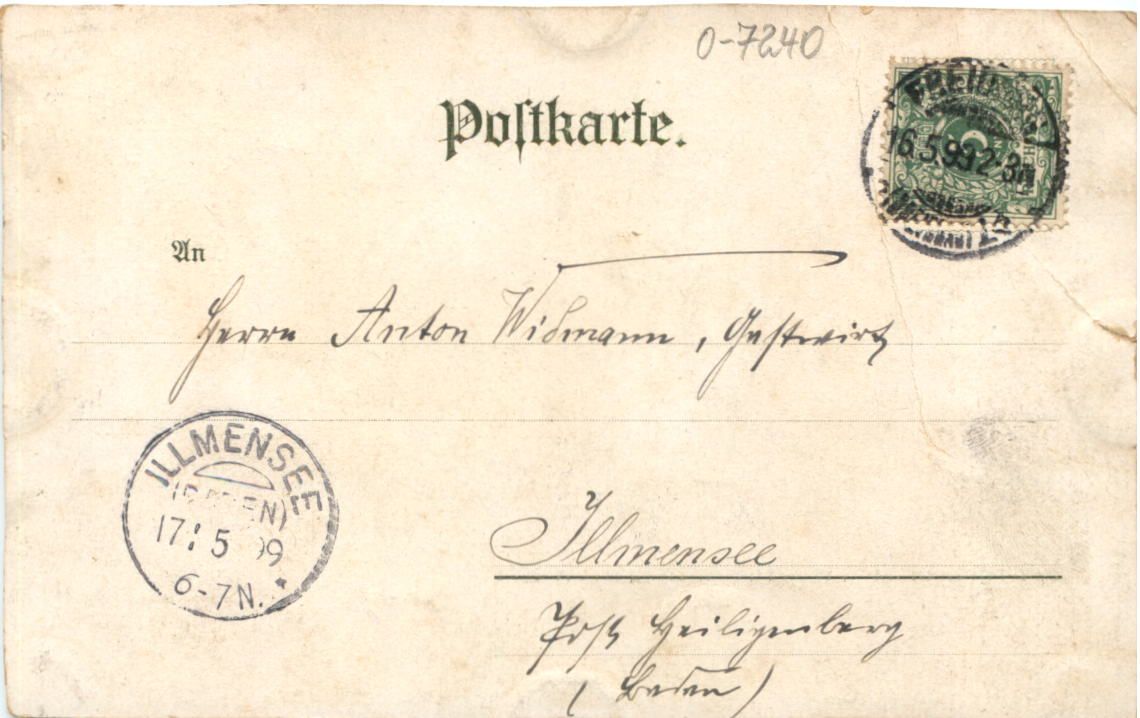 0-7240
Postkarte.
16.5.99 2-3N
An
Herrn Anton Widmann, Gastwirt
ILLMENSEE
(BADEN)
17. 5 99
6-7N.
Illmensee
Post Heiligenberg
(Baden)